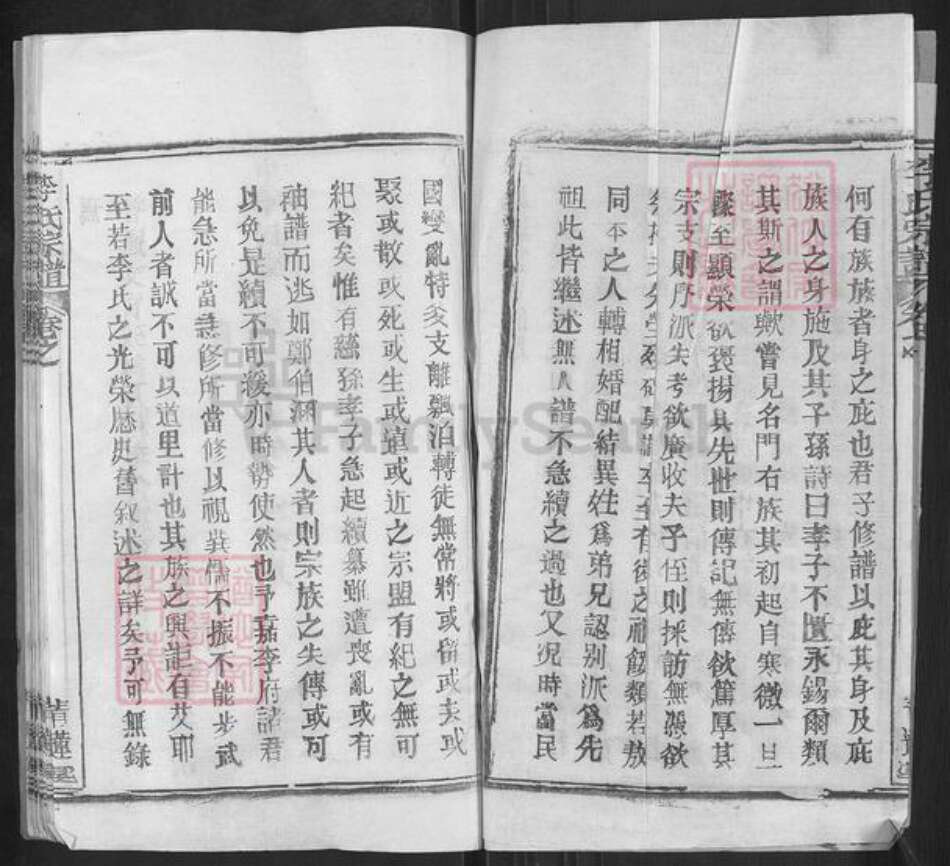 何有族族者身之庇也君子修譜以庇其身及庇
族人之身施及其子孫詩曰孝子不匱永錫爾類
其斯之謂歟嘗見名門右族其初起自寒微一旦
驟至顯榮欲褒揚其先世則傳記無傳欲篤厚其
宗支則序派失考欲廣收夫子侄則採訪無憑欲
至有後之祀餒類若敖
同本之人轉相婚配結異姓為弟兄認别派為先
祖此皆繼述無人譜不急續之過也又況時當民
國變亂特多支離飄泊轉徒無常將或留或去或
聚或散或死或生或遠或近之宗盟有紀之無可
紀者矣惟有慈孫孝子急起續纂雖遭喪亂或有
袖譜而逃如鄭伯滿其人者則宗族之失傳或可
以免是續不可緩亦時勢使然也予嘉李府諸君
能急所當急修所當修以視巽懦不振不能步武
前人者誠不可以道里計也其族之興詎有艾耶
至若李氏之光榮歷史舊叙述之詳矣予可無錄
李氏宗譜
卷之
青蓮堂
FamilySearch